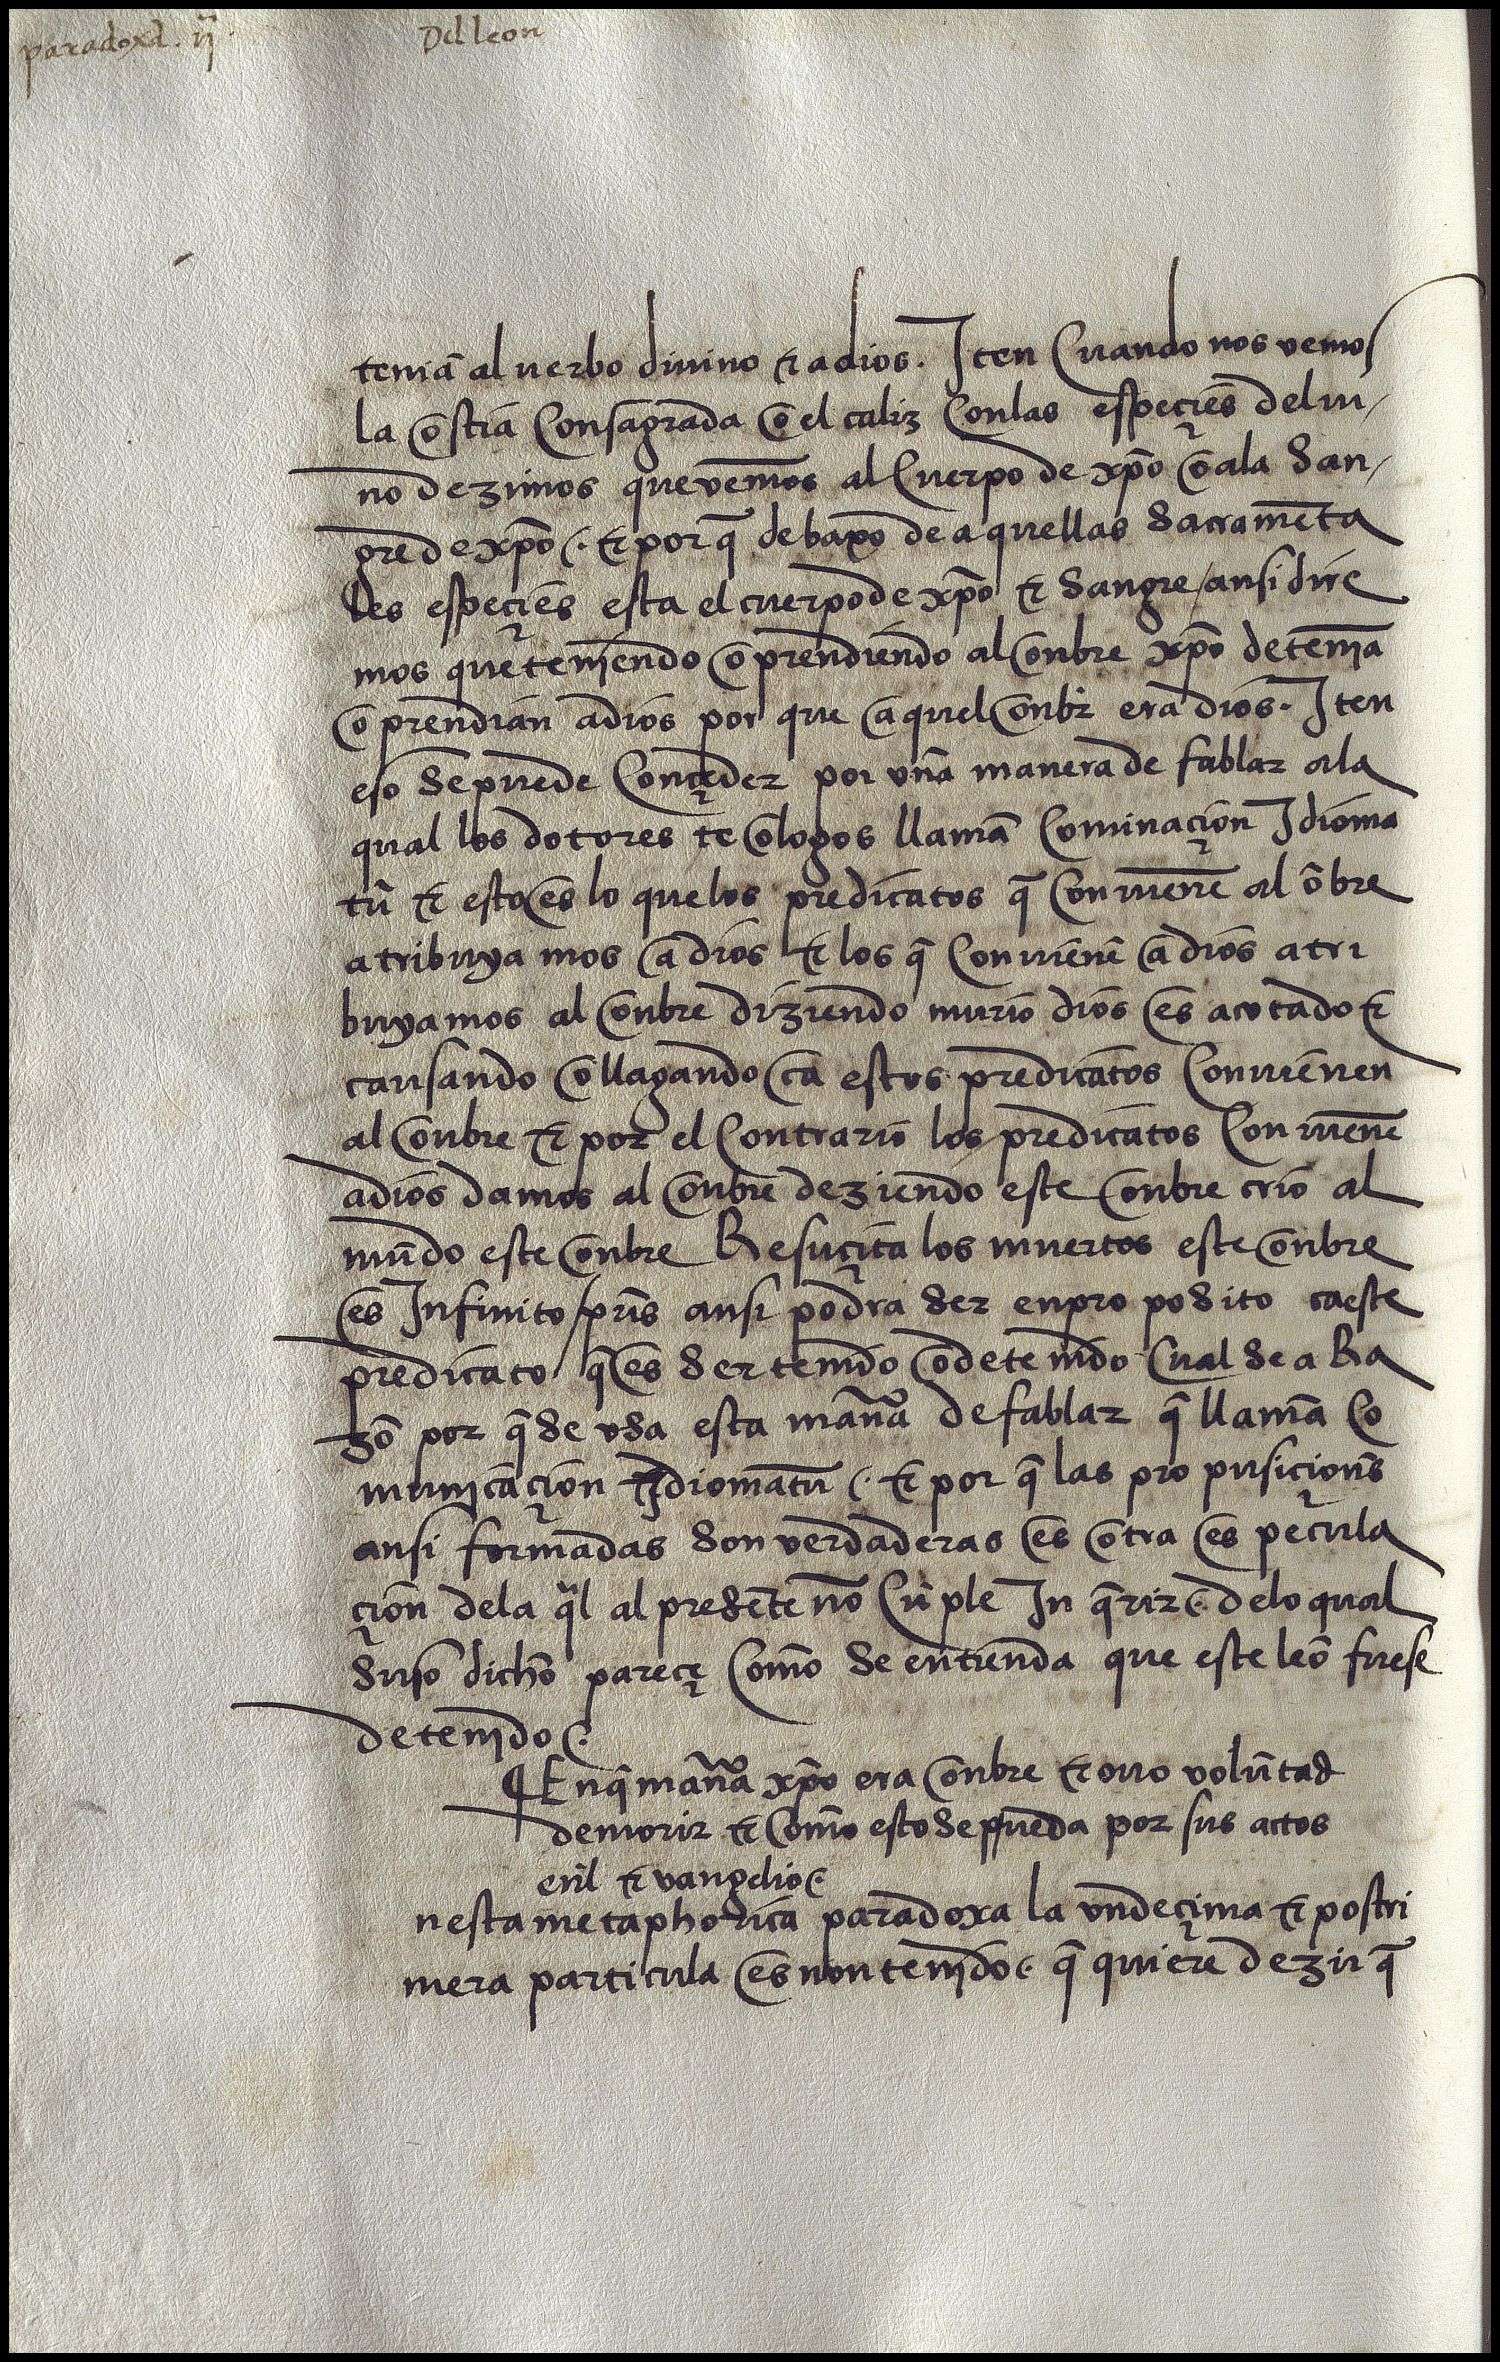 paradoxa. ij. Del leon
teniā al uerbo diuino τ a dios. Iten Cuando nos vemos
la ostia Consagrada o el caliz Con las espeçies del ui/
no dezimos que vemos al Cuerpo de xp̄o o a la San/
gre de xp̄o (. τ por q̄ debaxo de aquellas Sacramēta
les espeçies esta el cuerpo de xp̄o τ Sangre / ansi dire
mos que teniendo o prendiendo al onbre xp̄o detenia
o prendian a dios por que aquel onbr̄ era dios. Iten
eso Se puede Conçeder por vna manera de fablar a la
qual los dotores teologos llamā Cominaçion Idioma
tū τ esto es lo que los predicatos q̄ Conuienē al ōbre
atribuyamos a dios τ los q̄ Conuienē a dios atri
buyamos al onbre diziendo murio dios es acotado τ
cansando o llagando ca estos predicatos Conuienen
al onbre τ por el Contrario los predicatos Conuienē
a dios damos al onbre deziendo este onbre crio al
mūdo este onbre Resuçita los muertos este onbre
es Infinito / pus ansi podra Ser en propoSito a este
predicato / q̄ es Ser tenido o detenido Cual Sea Ra
zō por q̄ Se vSa esta man̄a de fablar q̄ llamā Co
municaçion Idiomatū (. τ por q̄ las propusiçions
ansi formadas Son verdaderas es otra espeçula
çion de la q̄l al preSēte no Cūple Inq̄rir (. de lo qual
Suso dicho pareçe Como Se entienda que este leō fuese
detenido (.
¶ En q̄ man̄a xp̄o era onbre τ ouo voluntad
de morir τ Como esto Se pueda por sus actos
en̄l euangelio (.
nesta metaphorica paradoxa la vndeçima τ postri
mera particula es non tenido (. q̄ quiere dezir q̄